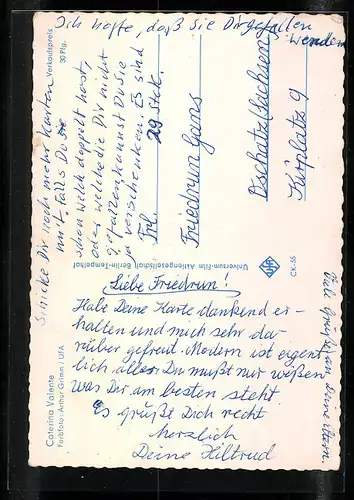 Liebe Friedrun!
Habe Deine Karte dankend er-
halten und mich sehr da-
rüber gefreut. Modern ist eigent-
lich alles. Du mußt nur wißen
was Dir am besten steht
Es grüßt Dich recht
herzlich
Deine Hiltrud
Viele Grüße an Deine Eltern.
Schicke Dir noch mehr Karten
mit. Falls Du sie
schon welch doppelt hast,
oder welche die Dir nicht
gefallen kannst Du sie
ja verschenken. Es sind
29 Stck.
Ich hoffe, daß sie Dir gefallen
werden
Frl.
Friedrun Gans
Oschatz/Sachsen
Kirplatz 9
Caterina Valente
Farbfoto: Arthur Grimm / UFA
Universum-Film Aktiengesellschaft Berlin-Tempelhof
UFA
CK-55
Verkaufspreis
30 Pfg.